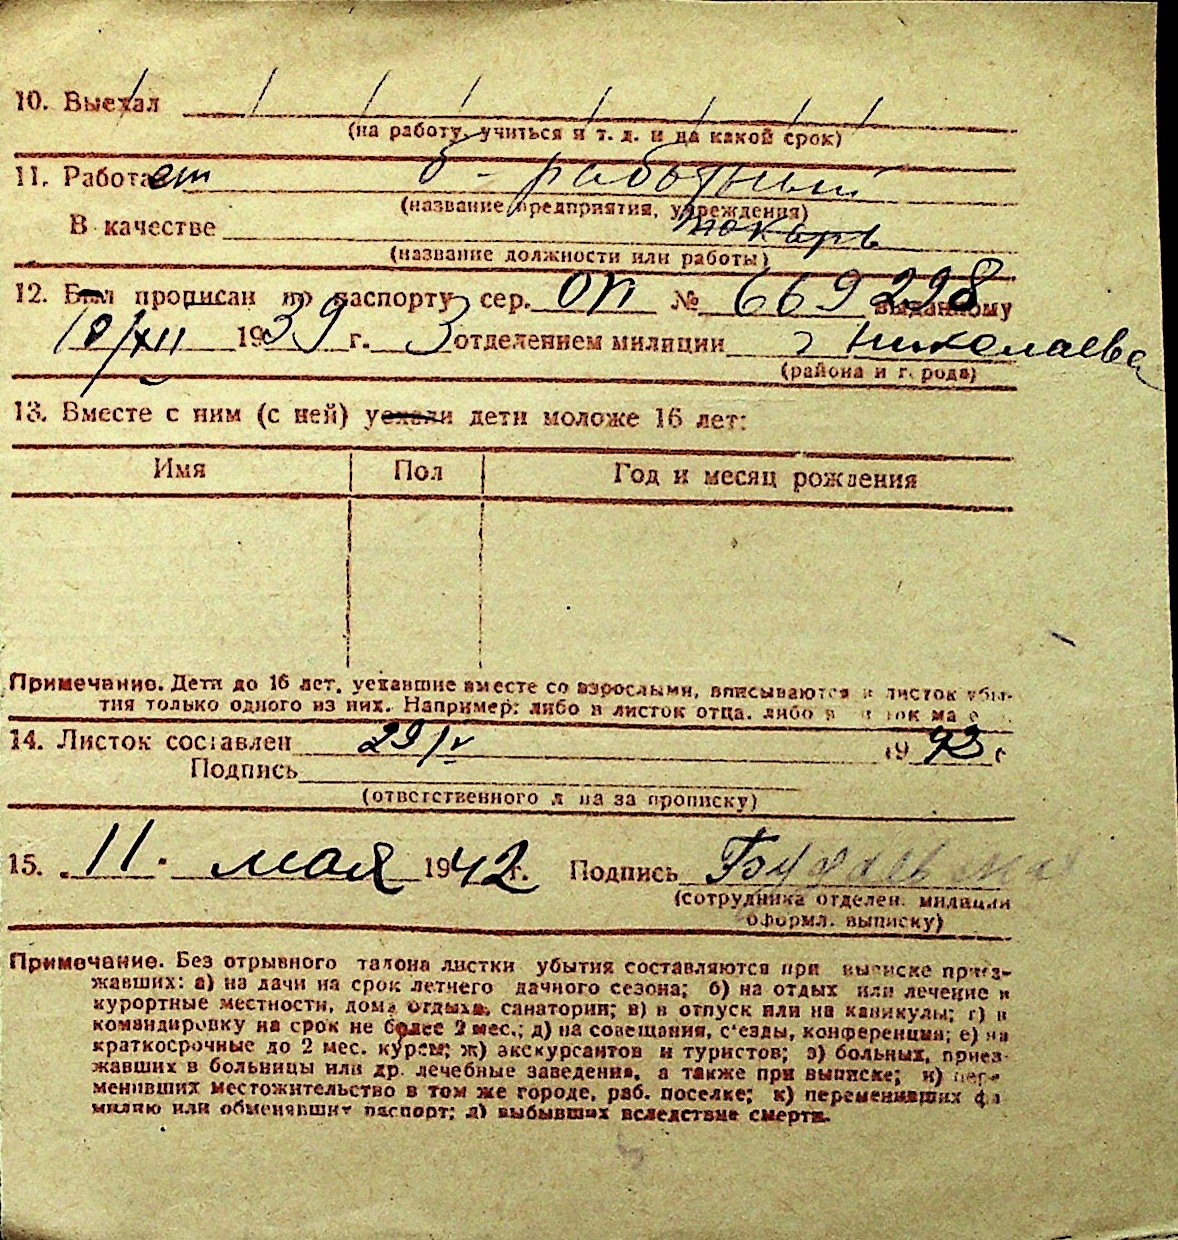 10. Выехал
(на работу, учиться и т. д. и на какой срок)
11. Работает б-работный
(название предприятия, учреждения)
В качестве токарь
(название должности или работы)
12. Был прописан по паспорту сер. ОП № 669298 выданному
10/XII 1939 г. 3 отделением милиции г Николаева
(района и города)
13. Вместе с ним (с ней) уехали дети моложе 16 лет:
Имя Пол Год и месяц рождения
Примечание. Дети до 16 лет, уехавшие вместе со взрослыми, вписываются в листок убы-
тия только одного из них. Например: либо в листок отца, либо в
14. Листок составлен 29/V 19 г
Подпись
(ответственного лица за прописку)
15. 11. мая 1942 г. Подпись
(сотрудника отделен. милиции
оформл. выписку)
Примечание. Без отрывного талона листки убытия составляются при выписке приез-
жавших: а) на дачи на срок летнего дачного сезона; б) на отдых или лечение в
курортные местности, дома отдыха, санатории; в) в отпуск или на каникулы; г) в
командировку на срок не более 2 мес.; д) на совещания, с'езды, конференции; е) на
краткосрочные до 2 мес. курсы; ж) экскурсантов и туристов; з) больных, приез-
жавших в больницы или др. лечебные заведения, а также при выписке; и) пере-
менивших местожительство в том же городе, раб. поселке; к) переменивших фа
милию или обменявших паспорт; л) выбывших вследствие смерти.